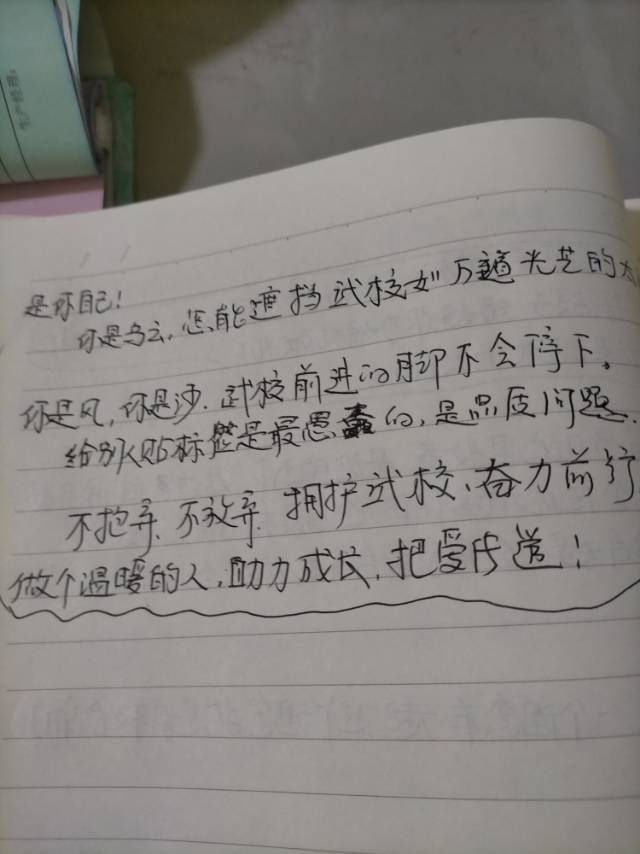 是你自己！
你是乌云，怎能遮挡武校如万道光芒的太
你是风，你是沙．武校前进的脚不会停下。
给别人贴标签是最愚蠢的，是品质问题．
不抱弃、不放弃、拥护武校、奋力前行
做个温暖的人，助力成长，把爱传递！